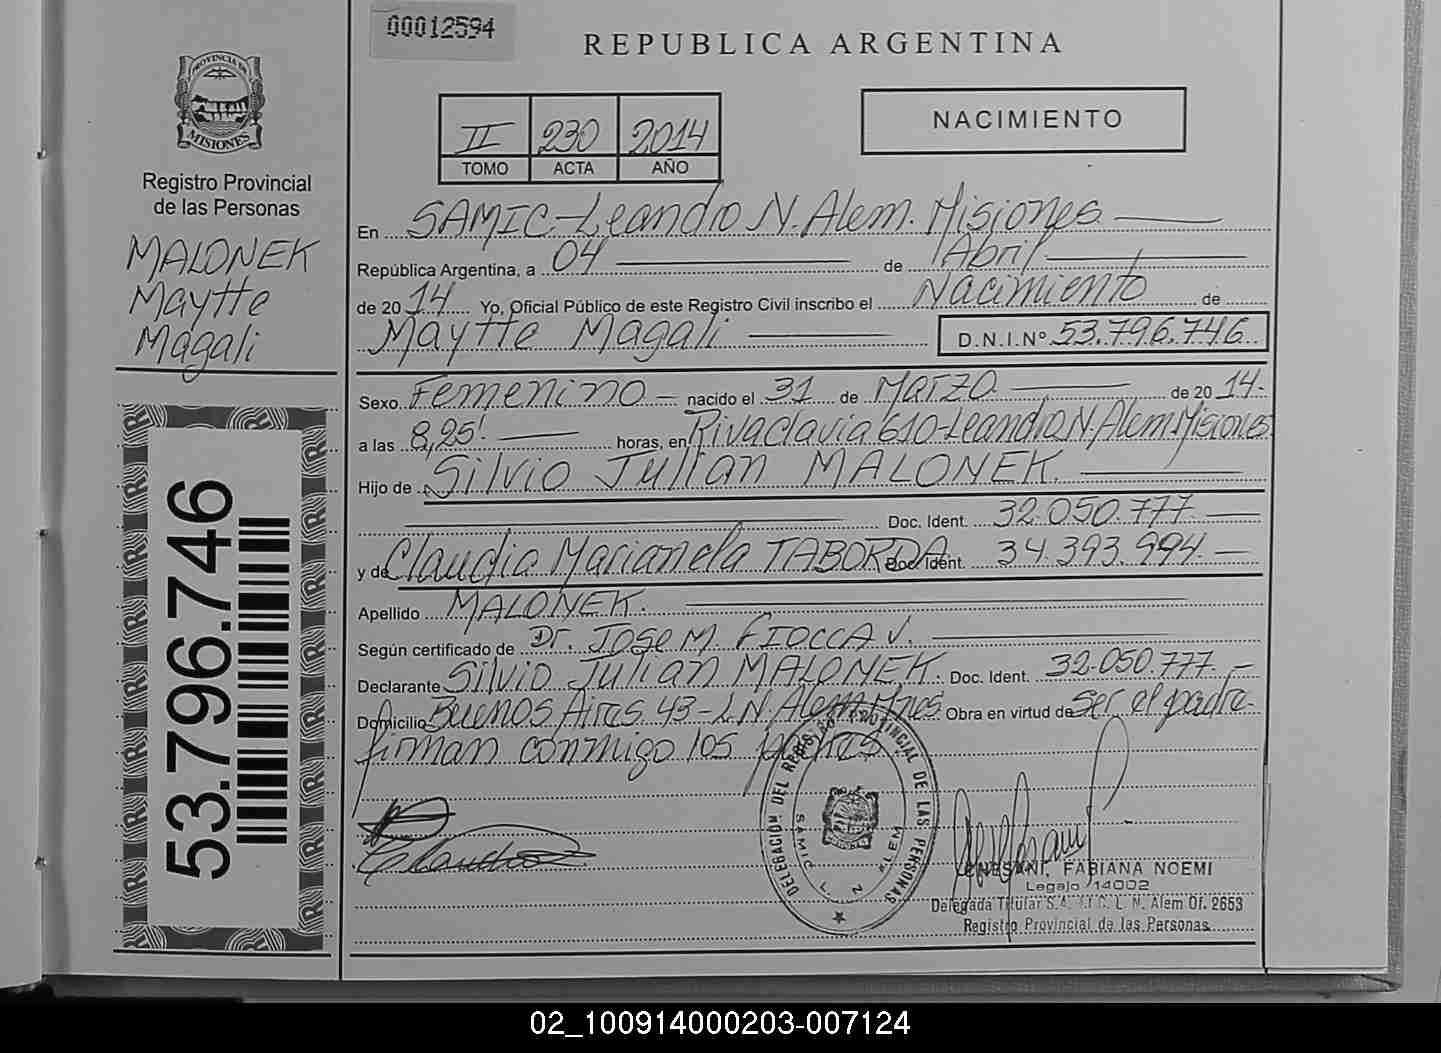 00012594
REPUBLICA ARGENTINA
PROVINCIA DE
MISIONES
Registro Provincial
de las Personas
MALONEK
Maytte
Magali
53.796.746
II 230 2014
TOMO ACTA AÑO
NACIMIENTO
En SAMIC-Leandro N. Alem. Misiones
República Argentina, a 04 de Abril
de 2014. Yo, Oficial Público de este Registro Civil inscribo el Nacimiento de
Maytte Magali D.N.I.Nº 53.796.746
Sexo Femenino nacido el 31 de Marzo de 2014.
a las 8,25'. horas, en Rivadavia 610-Leandro N. Alem Misiones
Hijo de Silvio Julian MALONEK.
Doc. Ident. 32.050.777
y de Claudia Marianela TABORDA Doc. Ident. 34.393.994.
Apellido MALONEK.
Según certificado de Dr. Jose M. FIOCCA V.
Declarante Silvio Julian MALONEK. Doc. Ident. 32.050.777.
Domicilio Buenos Aires 43-L N. Alem Mnes Obra en virtud de ser el padre.
firman conmigo los padres
DELEGACIÓN DEL REGISTRO PROVINCIAL DE LAS PERSONAS
SAMIC L. N. ALEM
FABIANA NOEMI
Legajo 14002
Delegada Titular S.A.M.I.C. L. N. Alem Of. 2653
Registro Provincial de las Personas
02_100914000203-007124